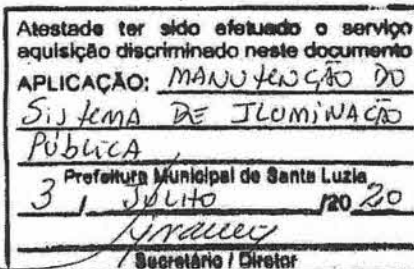 Atestado ter sido efetuado o serviço
aquisição discriminado neste documento
APLICAÇÃO: MANUTENÇÃO DO
SISTEMA DE ILUMINAÇÃO
PÚBLICA
Prefeitura Municipal de Santa Luzia
3 / JULHO /20 20
Secretário / Diretor